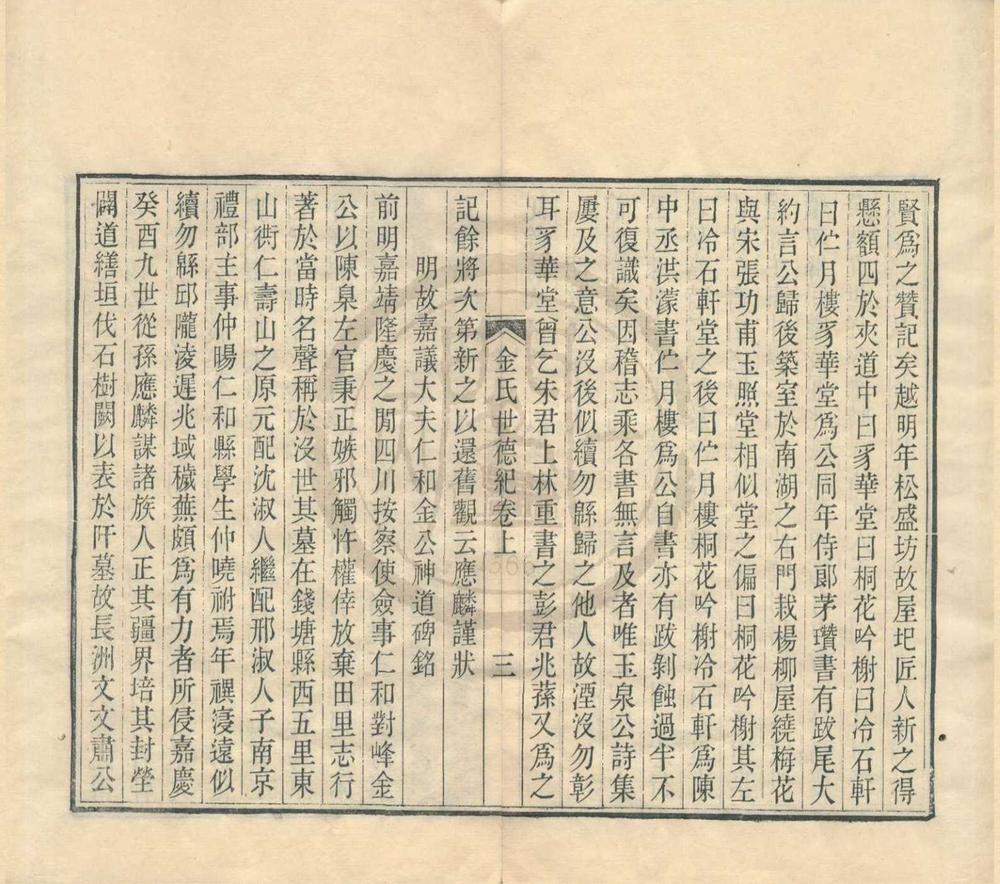 賢爲之贊記矣越明年松盛坊故屋圯匠人新之得
懸額四於夾道中曰豸華堂曰桐花吟榭曰冷石軒
曰伫月樓豸華堂爲公同年侍郞茅瓚書有跋尾大
約言公歸後築室於南湖之右門栽楊柳屋繞梅花
與宋張功甫玉照堂相似堂之偏曰桐花吟榭其左
曰冷石軒堂之後曰伫月樓桐花吟榭冷石軒爲陳
中丞洪濛書伫月樓爲公自書亦有跋剝蝕過半不
可復識矣因稽志乘各書無言及者唯玉泉公詩集
屢及之意公沒後似續勿緜歸之他人故湮沒勿彰
耳豸華堂曾乞朱君上林重書之彭君兆蓀又爲之
金氏世德紀卷上 三
記餘將次第新之以還舊觀云應麟謹狀
明故嘉議大夫仁和金公神道碑銘
前明嘉靖隆慶之閒四川按察使僉事仁和對峰金
公以陳臬左官秉正嫉邪觸忤權倖放棄田里志行
著於當時名聲稱於沒世其墓在錢塘縣西五里東
山衖仁壽山之原元配沈淑人繼配邢淑人子南京
禮部主事仲暘仁和縣學生仲曉祔焉年禩寖遠似
續勿緜邱隴淩遲兆域穢蕪頗爲有力者所侵嘉慶
癸酉九世從孫應麟謀諸族人正其疆界培其封塋
闢道繕垣伐石樹闕以表於阡墓故長洲文文肅公